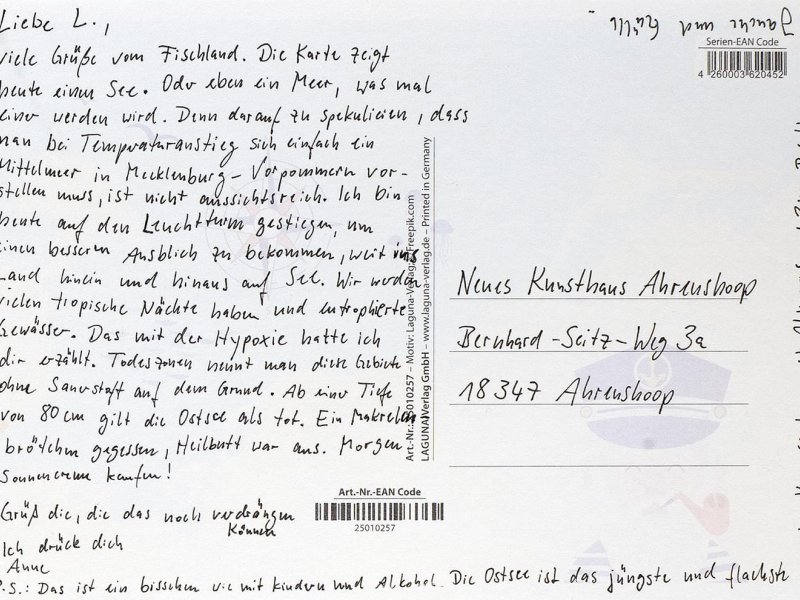 Liebe L.,
viele Grüße vom Fischland. Die Karte zeigt
heute einen See. Oder eben ein Meer, was mal
einer werden wird. Denn darauf zu spekulieren, dass
man bei Temperaturanstieg sich einfach ein
Mittelmeer in Mecklenburg-Vorpommern vor-
stellen muss, ist nicht aussichtsreich. Ich bin
heute auf den Leuchtturm gestiegen, um
einen besseren Ausblick zu bekommen, weit ins
Land hinein und hinaus auf See. Wir werden
vielen tropische Nächte haben und eutrophierte
Gewässer. Das mit der Hypoxie hatte ich
dir erzählt. Todeszonen nennt man diese Gebiete
ohne Sauerstoff auf dem Grund. Ab einer Tiefe
von 80 cm gilt die Ostsee als tot. Ein Makrelen
brötchen gegessen, Heilbutt war aus. Morgen
Sonnencreme kaufen!
Grüß die, die das noch verdrängen
können
Ich drück dich
Anne
P.S.: Das ist ein bisschen wie mit Kindern und Alkohol. Die Ostsee ist das jüngste und flachste
Jauche und Gülle
Serien-EAN Code
4 260003 620452
Art.-Nr.: 25010257 – Motiv: Laguna-Verlag/Freepik.com
LAGUNA Verlag GmbH – www.laguna-verlag.de – Printed in Germany
Neues Kunsthaus Ahrenshoop
Bernhard-Seitz-Weg 3a
18347 Ahrenshoop
Art.-Nr.-EAN Code
25010257